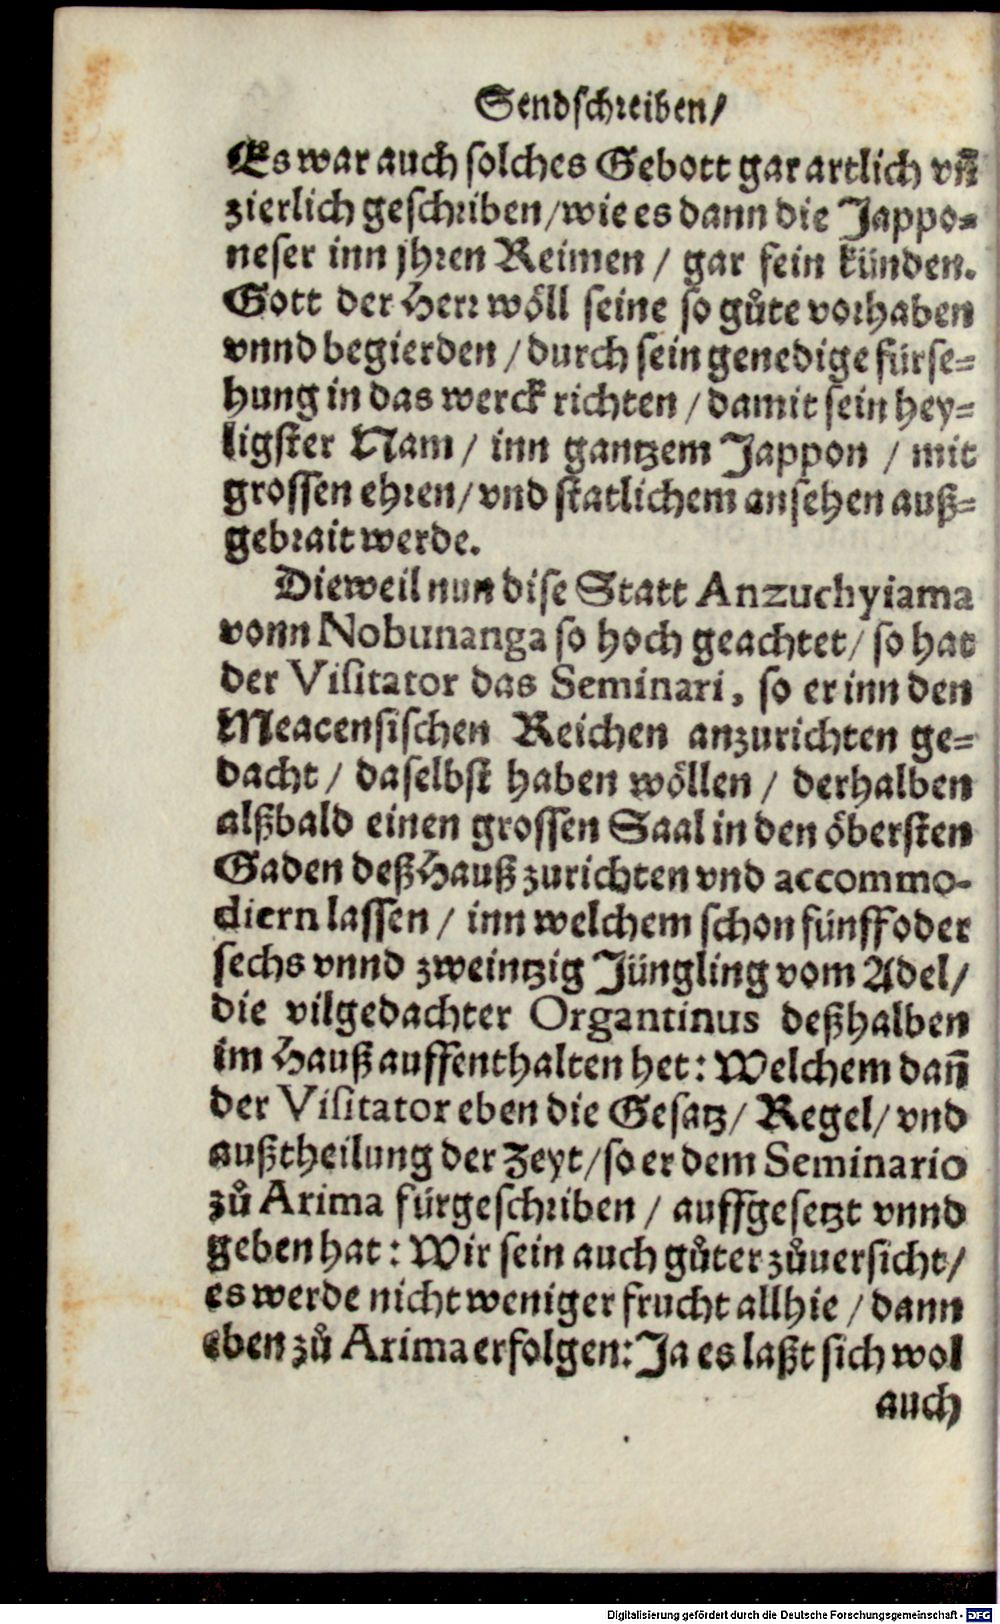 Sendschreiben/
Es war auch solches Gebott gar artlich vñ
zierlich geschriben/wie es dann die Jappo-
neser inn jhren Reimen / gar fein künden.
Gott der Herr wöll seine so gůte vorhaben
vnnd begierden / durch sein genedige fürse-
hung in das werck richten / damit sein hey-
ligster Nam / inn gantzem Jappon / mit
grossen ehren/ vnd statlichem ansehen auß-
gebrait werde.
Dieweil nun dise Statt Anzuchyiama
vonn Nobunanga so hoch geachtet/ so hat
der Visitator das Seminari, so er inn den
Meacensischen Reichen anzurichten ge-
dacht / daselbst haben wöllen / derhalben
alßbald einen grossen Saal in den öbersten
Gaden deß Hauß zurichten vnd accommo-
diern lassen / inn welchem schon fünff oder
sechs vnnd zweintzig Jüngling vom Adel/
die vilgedachter Organtinus deßhalben
im Hauß auffenthalten het: Welchem dañ
der Visitator eben die Gesatz/ Regel/ vnd
außtheilung der Zeyt/so er dem Seminario
zů Arima fürgeschriben / auffgesetzt vnnd
geben hat: Wir sein auch gůter zůuersicht/
es werde nicht weniger frucht allhie / dann
eben zů Arima erfolgen: Ja es laßt sich wol
auch
Digitalisierung gefördert durch die Deutsche Forschungsgemeinschaft - DFG